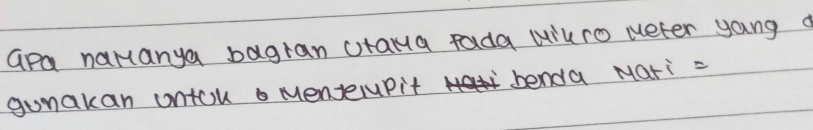 apa namanya bagian utama pada mikro meter yang d
gunakan untuk menjempit benda mati =